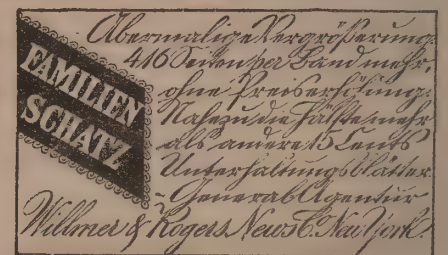 FAMILIEN
SCHATZ
Abermalige Vergrößerung
416 Seiten per Band mehr,
ohne Preiserhöhung.
Nahezu die Hälfte mehr
als andere 15 Cents
Unterhaltungsblätter.
General Agentur
Willmer & Rogers News Co. New York